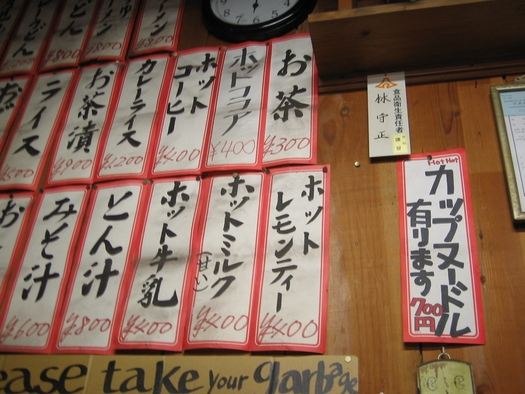 お茶
¥300
ホットココア
¥400
ホット
コーヒー
¥400
カレーライス
¥1200
お茶漬
¥900
ライス
¥500
ホット
レモンティー
¥400
ホットミルク
(甘い)
¥400
ホット牛乳
¥400
とん汁
¥800
みそ汁
¥600
食品衛生責任者
林守正
Hot Hot
カップヌードル
有ります
700円
ease take your garbage